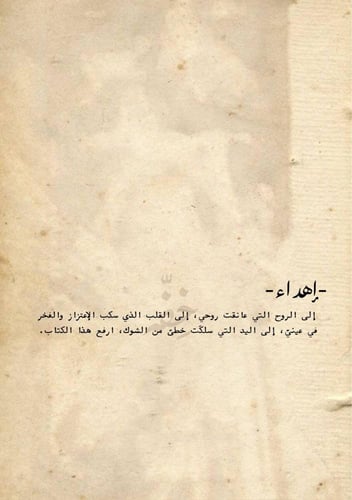 -إهداء-
إلى الروح التي عانقت روحي، إلى القلب الذي سكب الإعتزاز والفخر
في عينيّ، إلى اليد التي سلكّت خطىّ من الشوك، ارفع هذا الكتاب.